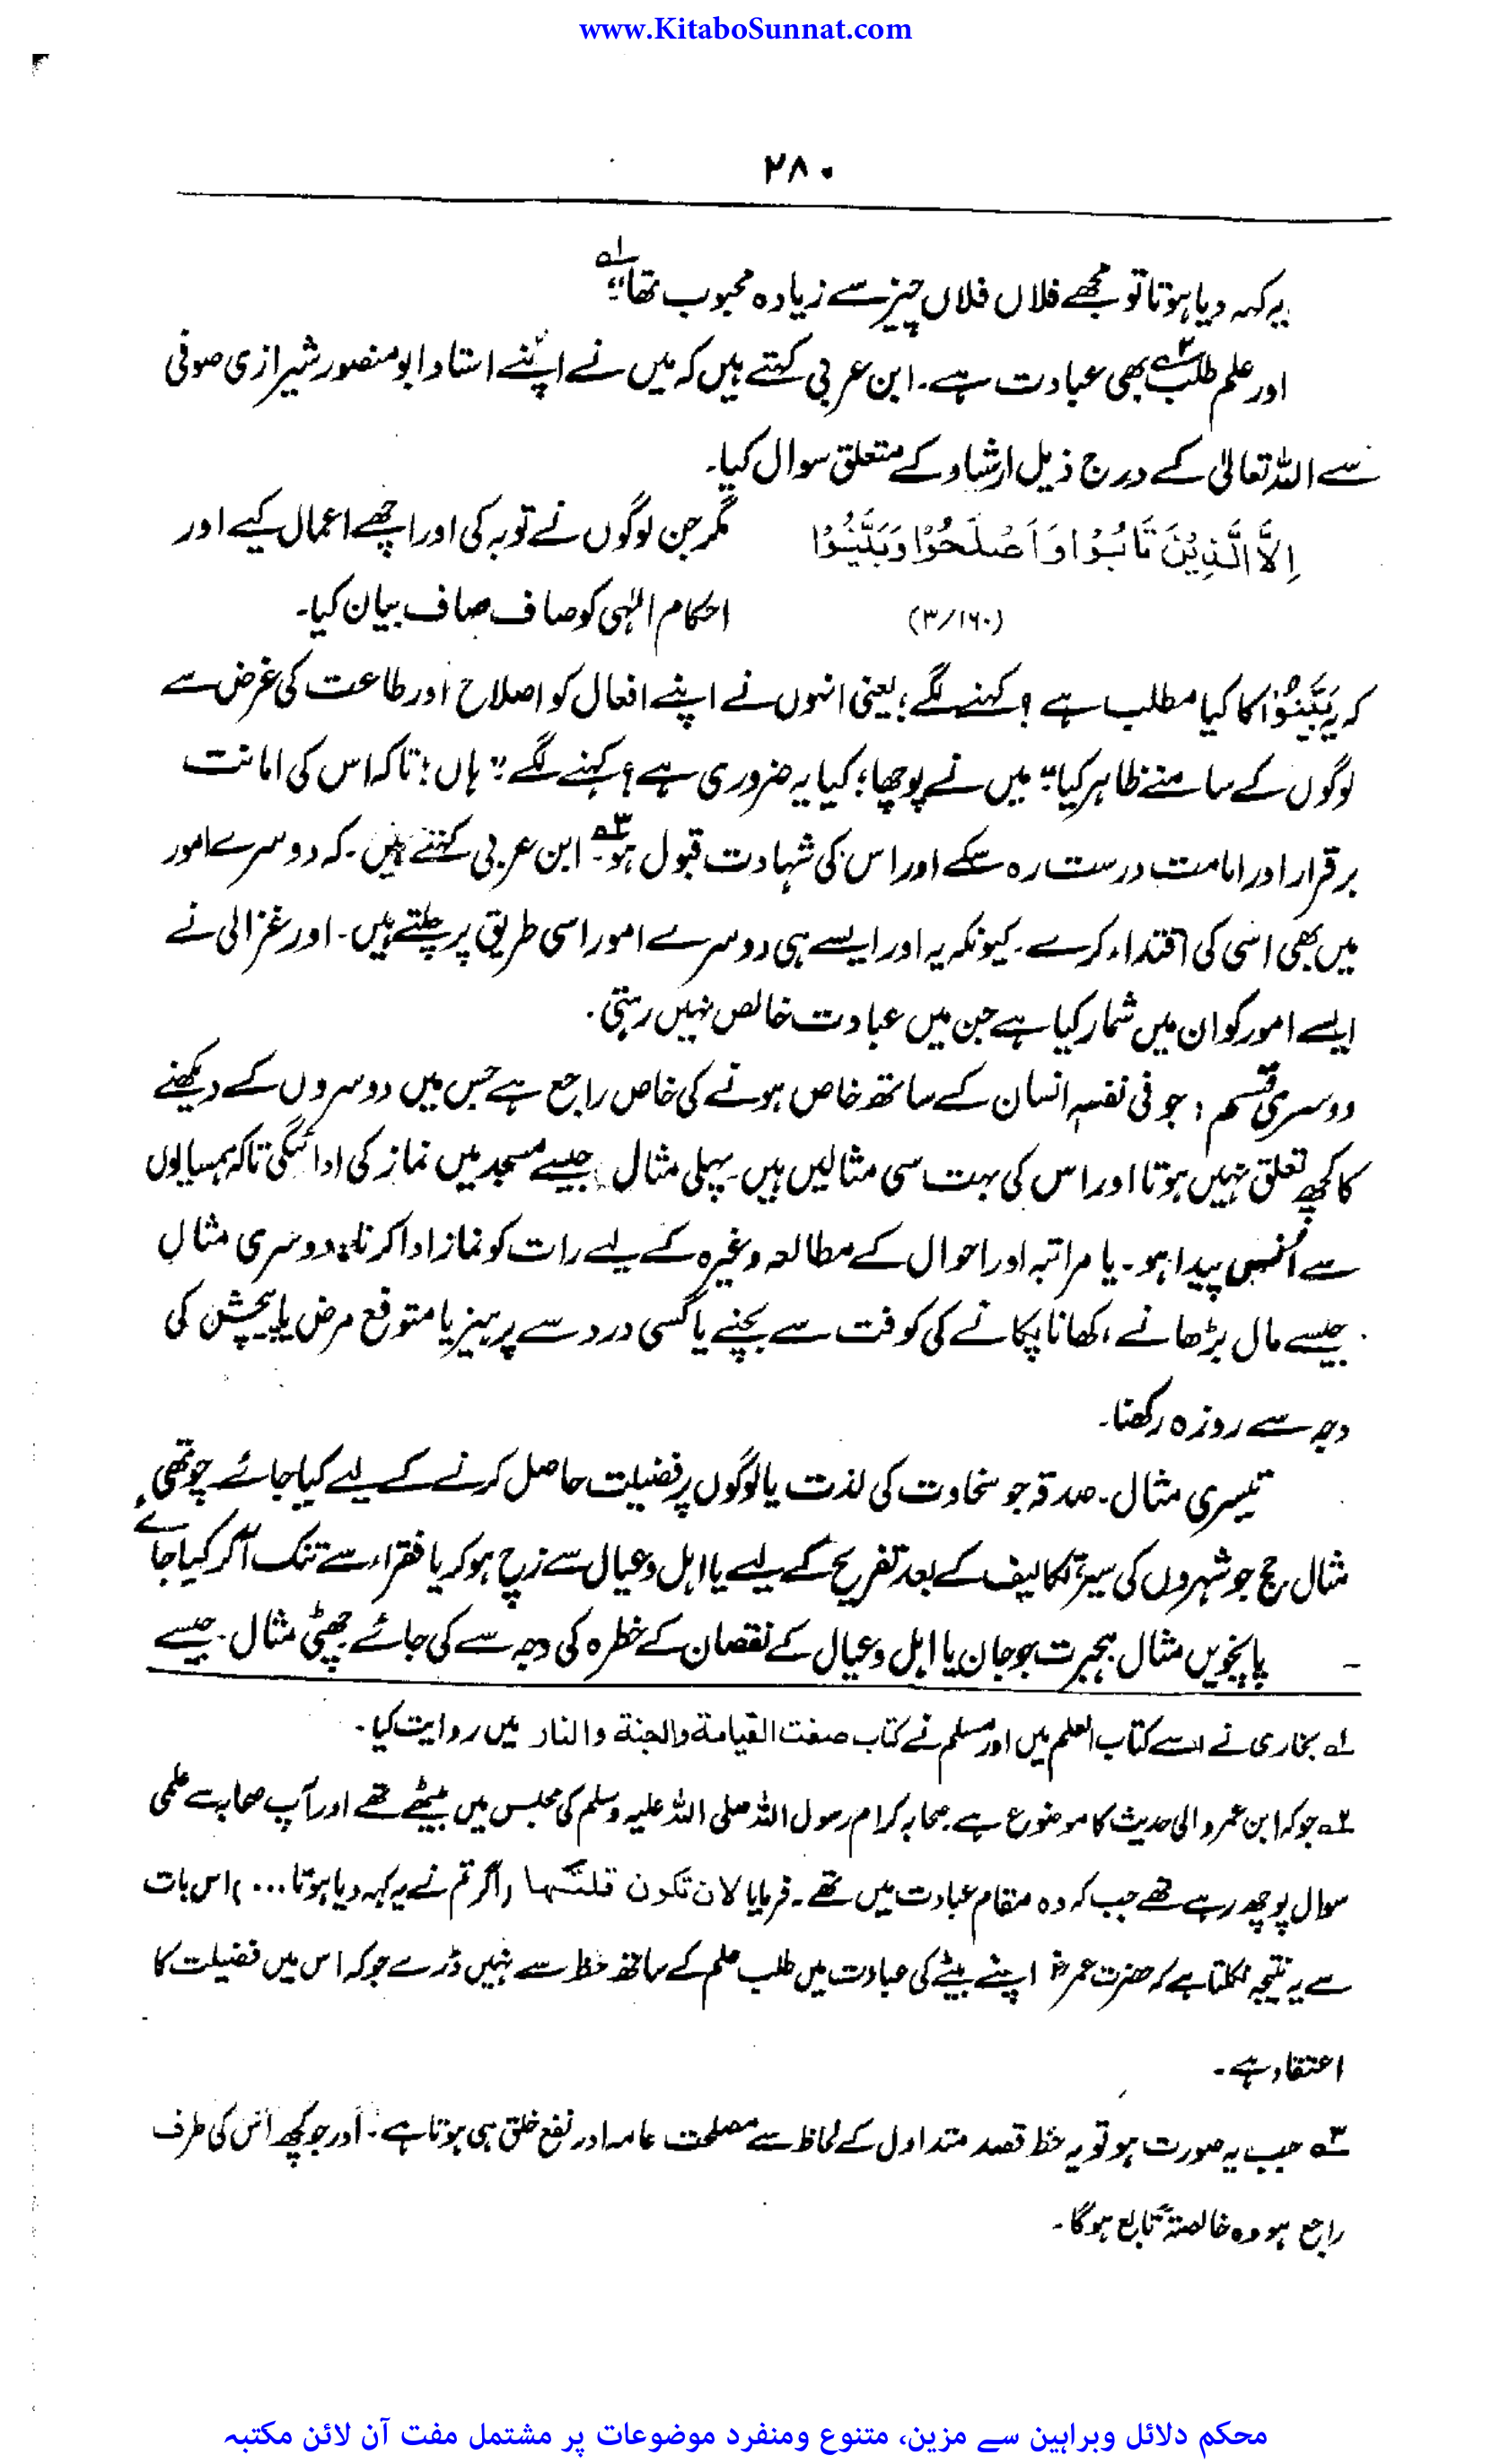 www.KitaboSunnat.com
۲۸۰
یہ کہہ دیا ہوتا تو مجھے فلاں فلاں چیز سے زیادہ محبوب تھا“؎۱
اور علم طلب؎۲ بھی عبادت ہے۔ ابن عربی کہتے ہیں کہ میں نے اپنے استاد ابو منصور شیرازی صوفی
سے اللہ تعالیٰ کے درج ذیل ارشاد کے متعلق سوال کیا۔
اِلاَّ الَّذِیْنَ تَابُوْا وَاَصْلَحُوْا وَبَیَّنُوْا
(۳/۱۶۰)
مگر جن لوگوں نے توبہ کی اور اچھے اعمال کیے اور
احکام الٰہی کو صاف صاف بیان کیا۔
کہ بَیَّنُوْا کا کیا مطلب ہے؟ کہنے لگے؛ یعنی انہوں نے اپنے افعال کو اصلاح اور طاعت کی غرض سے
لوگوں کے سامنے ظاہر کیا“ میں نے پوچھا؛ کیا یہ ضروری ہے؟ کہنے لگے: ہاں؛ تاکہ اس کی امانت
برقرار اور امامت درست رہ سکے اور اس کی شہادت قبول ہو۔؎۳ ابن عربی کہتے ہیں۔ کہ دوسرے امور
میں بھی اسی کی اقتداء کرے۔ کیونکہ یہ اور ایسے ہی دوسرے امور اسی طریق پر چلتے ہیں۔ اور غزالی نے
ایسے امور کو ان میں شمار کیا ہے جن میں عبادت خالص نہیں رہتی۔
دوسری قسم؛ جو فی نفسہ انسان کے ساتھ خاص ہونے کی خاص راجع ہے جس میں دوسروں کے دیکھنے
کا کچھ تعلق نہیں ہوتا اور اس کی بہت سی مثالیں ہیں۔ پہلی مثال جیسے مسجد میں نماز کی ادائیگی تاکہ ہمسایوں
سے اُنس پیدا ہو۔ یا مراتبہ اور احوال کے مطالعہ وغیرہ کے لیے رات کو نماز ادا کرنا، دوسری مثال
جیسے مال بڑھانے، کھانا پکانے کی کوفت سے بچنے یا کسی درد سے پرہیز یا متوقع مرض یا پیچش کی
وجہ سے روزہ رکھنا۔
تیسری مثال۔ صدقہ جو سخاوت کی لذت یا لوگوں پر فضیلت حاصل کرنے کے لیے کیا جائے چوتھی
مثال حج جو شہروں کی سیر، تکالیف کے بعد تفریح کے لیے یا اہل و عیال سے زچ ہو کر یا فقراء سے تنگ آکر کیا جائے
پانچویں مثال ہجرت جو جان یا اہل و عیال کے نقصان کے خطرہ کی وجہ سے کی جائے چھٹی مثال۔ جیسے
؎۱ بخاری نے اسے کتاب العلم میں اور مسلم نے کتاب صفت القیامة والجنة والنار میں روایت کیا۔
؎۲ جو کہ ابن عمر والی حدیث کا موضوع ہے۔ صحابہ کرام رسول اللہ صلی اللہ علیہ وسلم کی مجلس میں بیٹھے تھے اور آپ صحابہ سے علمی
سوال پوچھ رہے تھے جب کہ وہ مقام عبادت میں تھے۔ فرمایا لان تکون قلتہا (اگر تم نے یہ کہہ دیا ہوتا ...) اس بات
سے یہ نتیجہ نکلتا ہے کہ حضرت عمرؓ اپنے بیٹے کی عبادت میں طلب علم کے ساتھ حظ سے نہیں ڈرے جو کہ اس میں فضیلت کا
اعتقاد ہے۔
؎۳ جب یہ صورت ہو تو یہ حظ قصد متداول کے لحاظ سے مصلحت عامہ اور نفع خلق ہی ہوتا ہے۔ اور جو کچھ اس کی طرف
راجع ہو وہ خالصۃً تابع ہوگا۔
محکم دلائل وبراہین سے مزین، متنوع ومنفرد موضوعات پر مشتمل مفت آن لائن مکتبہ